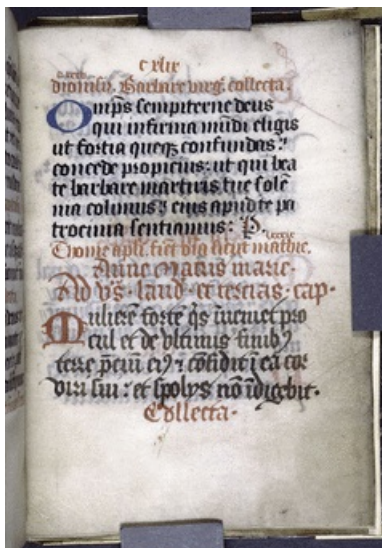 c xlix
dionisij. Barbare virg. collecta.
Omps sempiterne deus
qui infirma mūdi eligis
ut fortia queqz confundas:
concede propicius: ut qui bea
te barbare martiris tue solē
nia colimus eius apud te pa
trocinia sentiamus: P.
Thome apli. fiat sicut mathie.
Anne matris marie.
Ad vs. laud. et tercias. cap.
Mulierē fortē qs inueniet pro
cul et de vltimis finibꝯ
terre pciū eiꝯ ⁊ cōfidit ī ea cor
viri sui: et spolijs nō īdigebit.
Collecta.